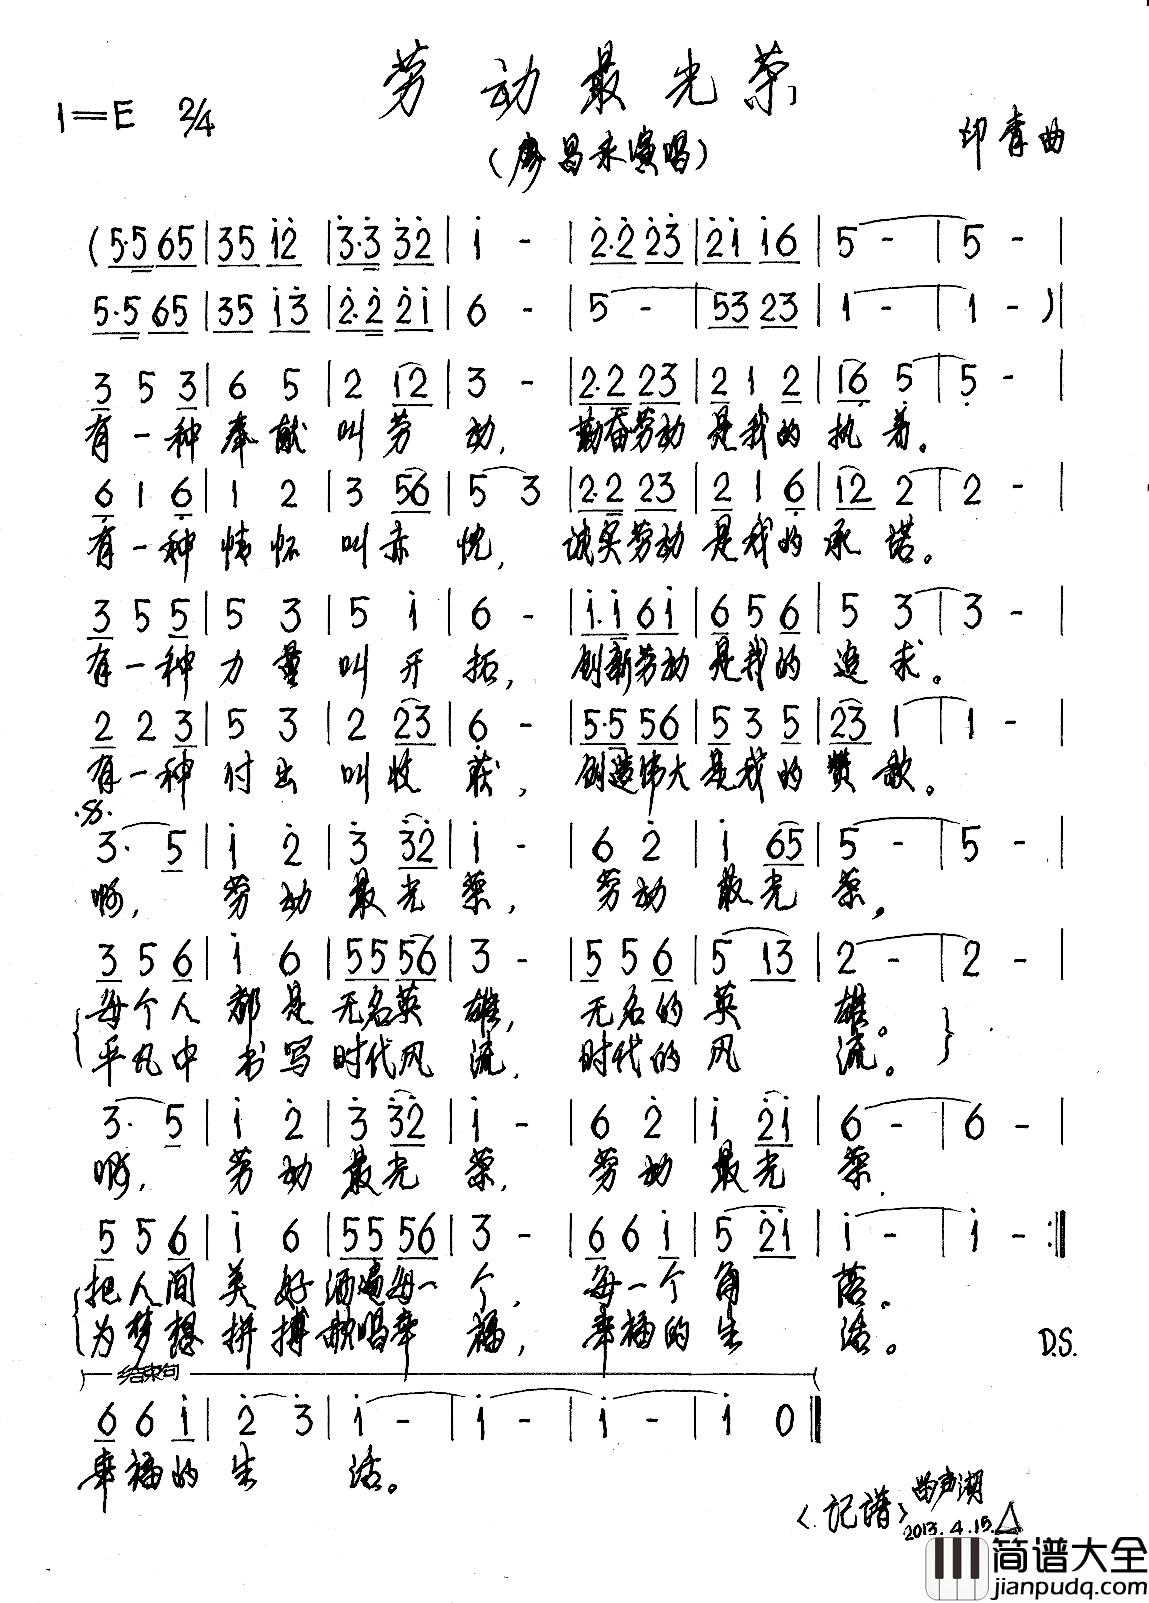 劳动最光荣
1=E 2/4
(廖昌永演唱)
印青曲
(5·5 65 | 35 1̇2̇ | 3̇·3̇ 3̇2̇ | 1̇ - | 2̇·2̇ 2̇3̇ | 2̇1̇ 1̇6 | 5 - | 5 - |
5·5 65 | 35 1̇3̇ | 2̇·2̇ 2̇1̇ | 6 - | 5 - | 53 23 | 1 - | 1 - )|
3 5 3 | 6 5 | 2 12 | 3 - | 2·2 23 | 2 1 2 | 16̣ 5̣ | 5̣ - |
有一种奉献叫劳动，勤奋劳动是我的执着。
6̣ 1 6̣ | 1 2 | 3 56 | 5 3 | 2·2 23 | 2 1 6̣ | 12 2 | 2 - |
有一种情怀叫赤忱，诚实劳动是我的承诺。
3 5 5 | 5 3 | 5 1̇ | 6 - | 1̇·1̇ 61̇ | 6 5 6 | 5 3 | 3 - |
有一种力量叫开拓，创新劳动是我的追求。
2 2 3 | 5 3 | 2 23 | 6̣ - | 5·5 56 | 5 3 5 | 23 1 | 1 - |
有一种付出叫收获，创造伟大是我的赞歌。
3· 5 | 1̇ 2̇ | 3̇ 3̇2̇ | 1̇ - | 6 2̇ | 1̇ 65 | 5 - | 5 - |
啊，劳动最光荣，劳动最光荣，
3 5 6 | 1̇ 6 | 55 56 | 3 - | 5 5 6 | 5 13 | 2 - | 2 - |
每个人都是无名英雄，无名的英雄。
平凡中书写时代风流，时代的风流。
3· 5 | 1̇ 2̇ | 3̇ 3̇2̇ | 1̇ - | 6 2̇ | 1̇ 2̇1̇ | 6 - | 6 - |
啊，劳动最光荣，劳动最光荣，
5 5 6 | 1̇ 6 | 55 56 | 3 - | 6 6 1̇ | 5 2̇1̇ | 1̇ - | 1̇ - :‖
把人间美好洒遍每一个，每一个角落。
为梦想拼搏歌唱幸福，幸福的生活。 D.S.
结束句
6 6 1̇ | 2̇ 3̇ | 1̇ - | 1̇ - | 1̇ - | 1̇ 0 ‖
幸福的生活。
〈记谱〉曲声湖
2013.4.15.
简谱大全
jianpudq.com